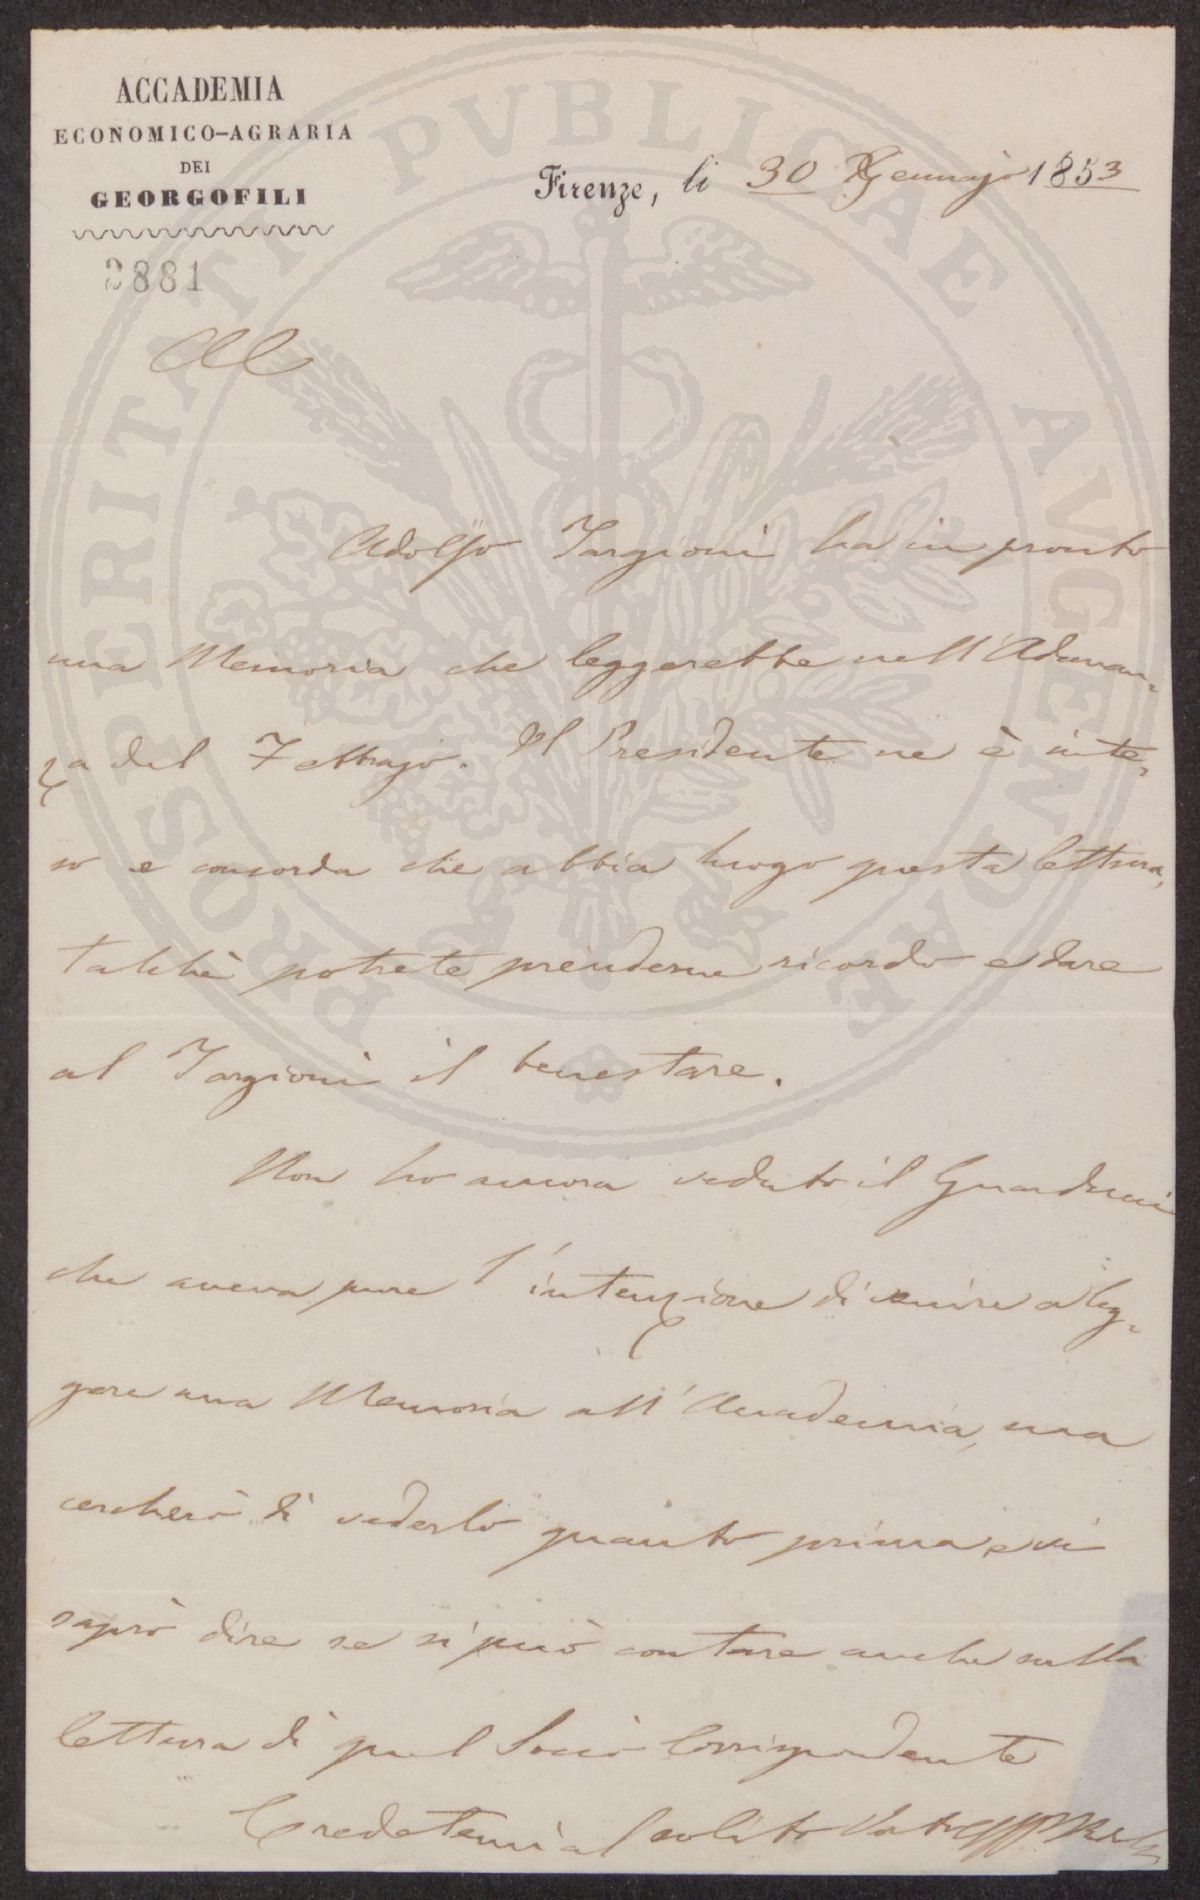 ACCADEMIA
ECONOMICO-AGRARIA
DEI
GEORGOFILI
Firenze, li 30 Gennajo 1853
2881
Adolfo Targioni ha in pronto
una Memoria che leggerebbe nell'Adunan-
za del Febbrajo. Il Presidente ne è inte-
so e concorda che abbia luogo questa lettura,
talchè potrete prenderne ricordo e dare
al Targioni il benestare.
Non ho ancora veduto il
che aveva pure l'intenzione di venire a leg-
gere una Memoria all'Accademia, ma
cercherò di vederlo quanto prima, e vi
saprò dire se si può contare anche sulla
lettura di quel Socio Corrispondente
Credetemi al solito
PROSPERITATI PVBLICAE AVGENDAE